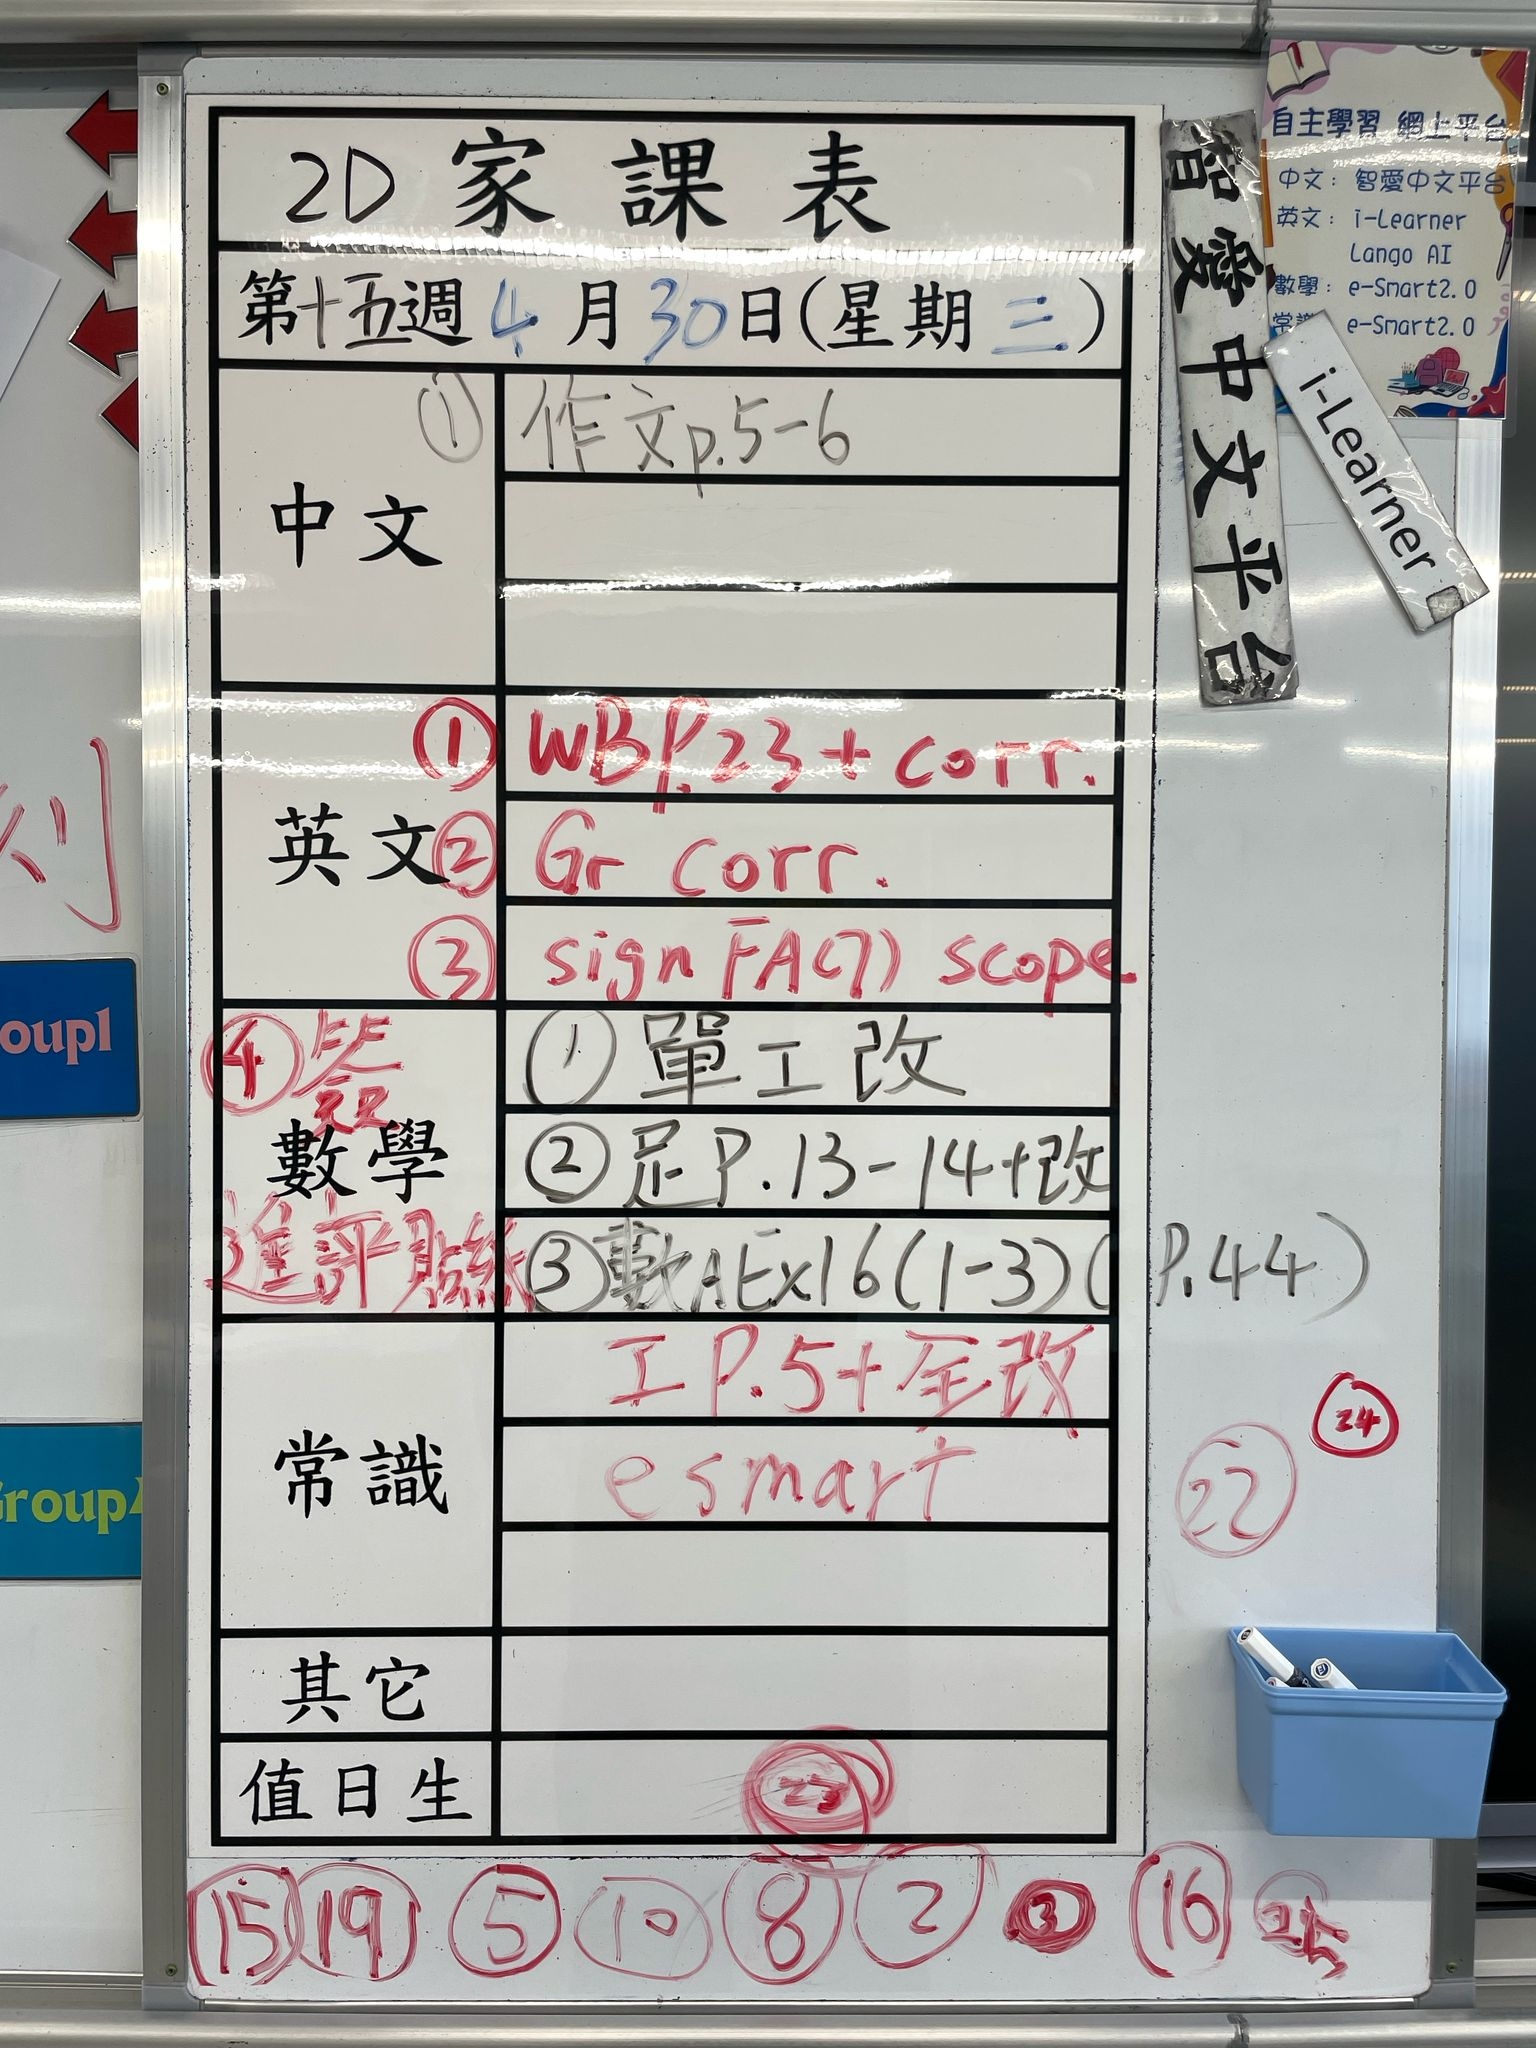 2D 家課表
第十五週 4月30日(星期三)
中文
① 作文p.5-6
英文
① WB P.23 + corr.
② Gr corr.
③ sign FA(7) scope
④ 簽
進評貼紙
數學
① 單工改
② 足P.13-14+改
③ 數AEx16(1-3)(P.44)
常識
工P.5+全改
esmart
其它
值日生
23
15 19 5 10 8 2 3 16 25
22
24
自主學習 網上平台
中文: 智愛中文平台
英文: i-Learner
Lango AI
數學: e-Smart2.0
常識: e-Smart2.0
智愛中文平台
i-Learner
oup1
Group4